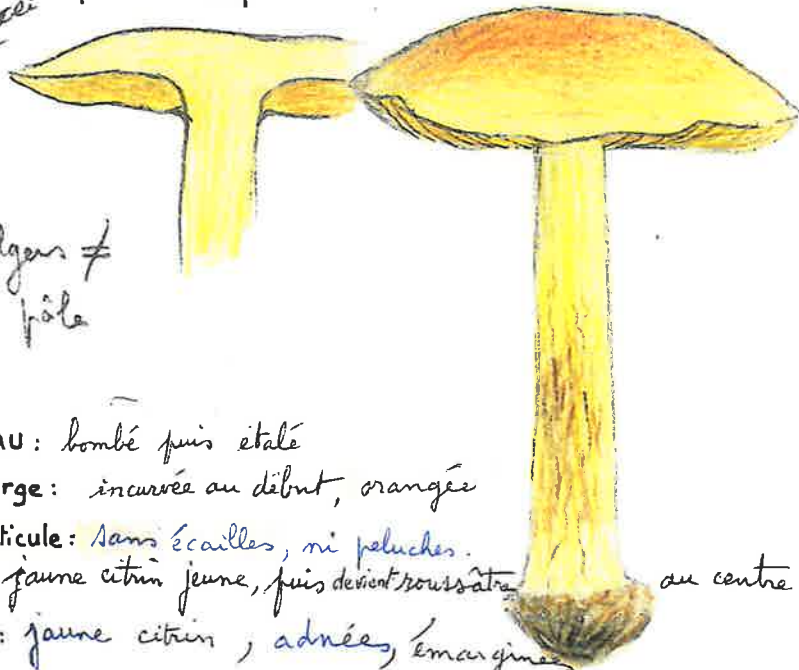 ≠
pâle
AU : bombé puis étalé
rge : incurvée au début, orangée
ticule : sans écailles, ni peluches.
jaune citrin jeune, puis devient roussâtre au centre
: jaune citrin, adnées, émarginées